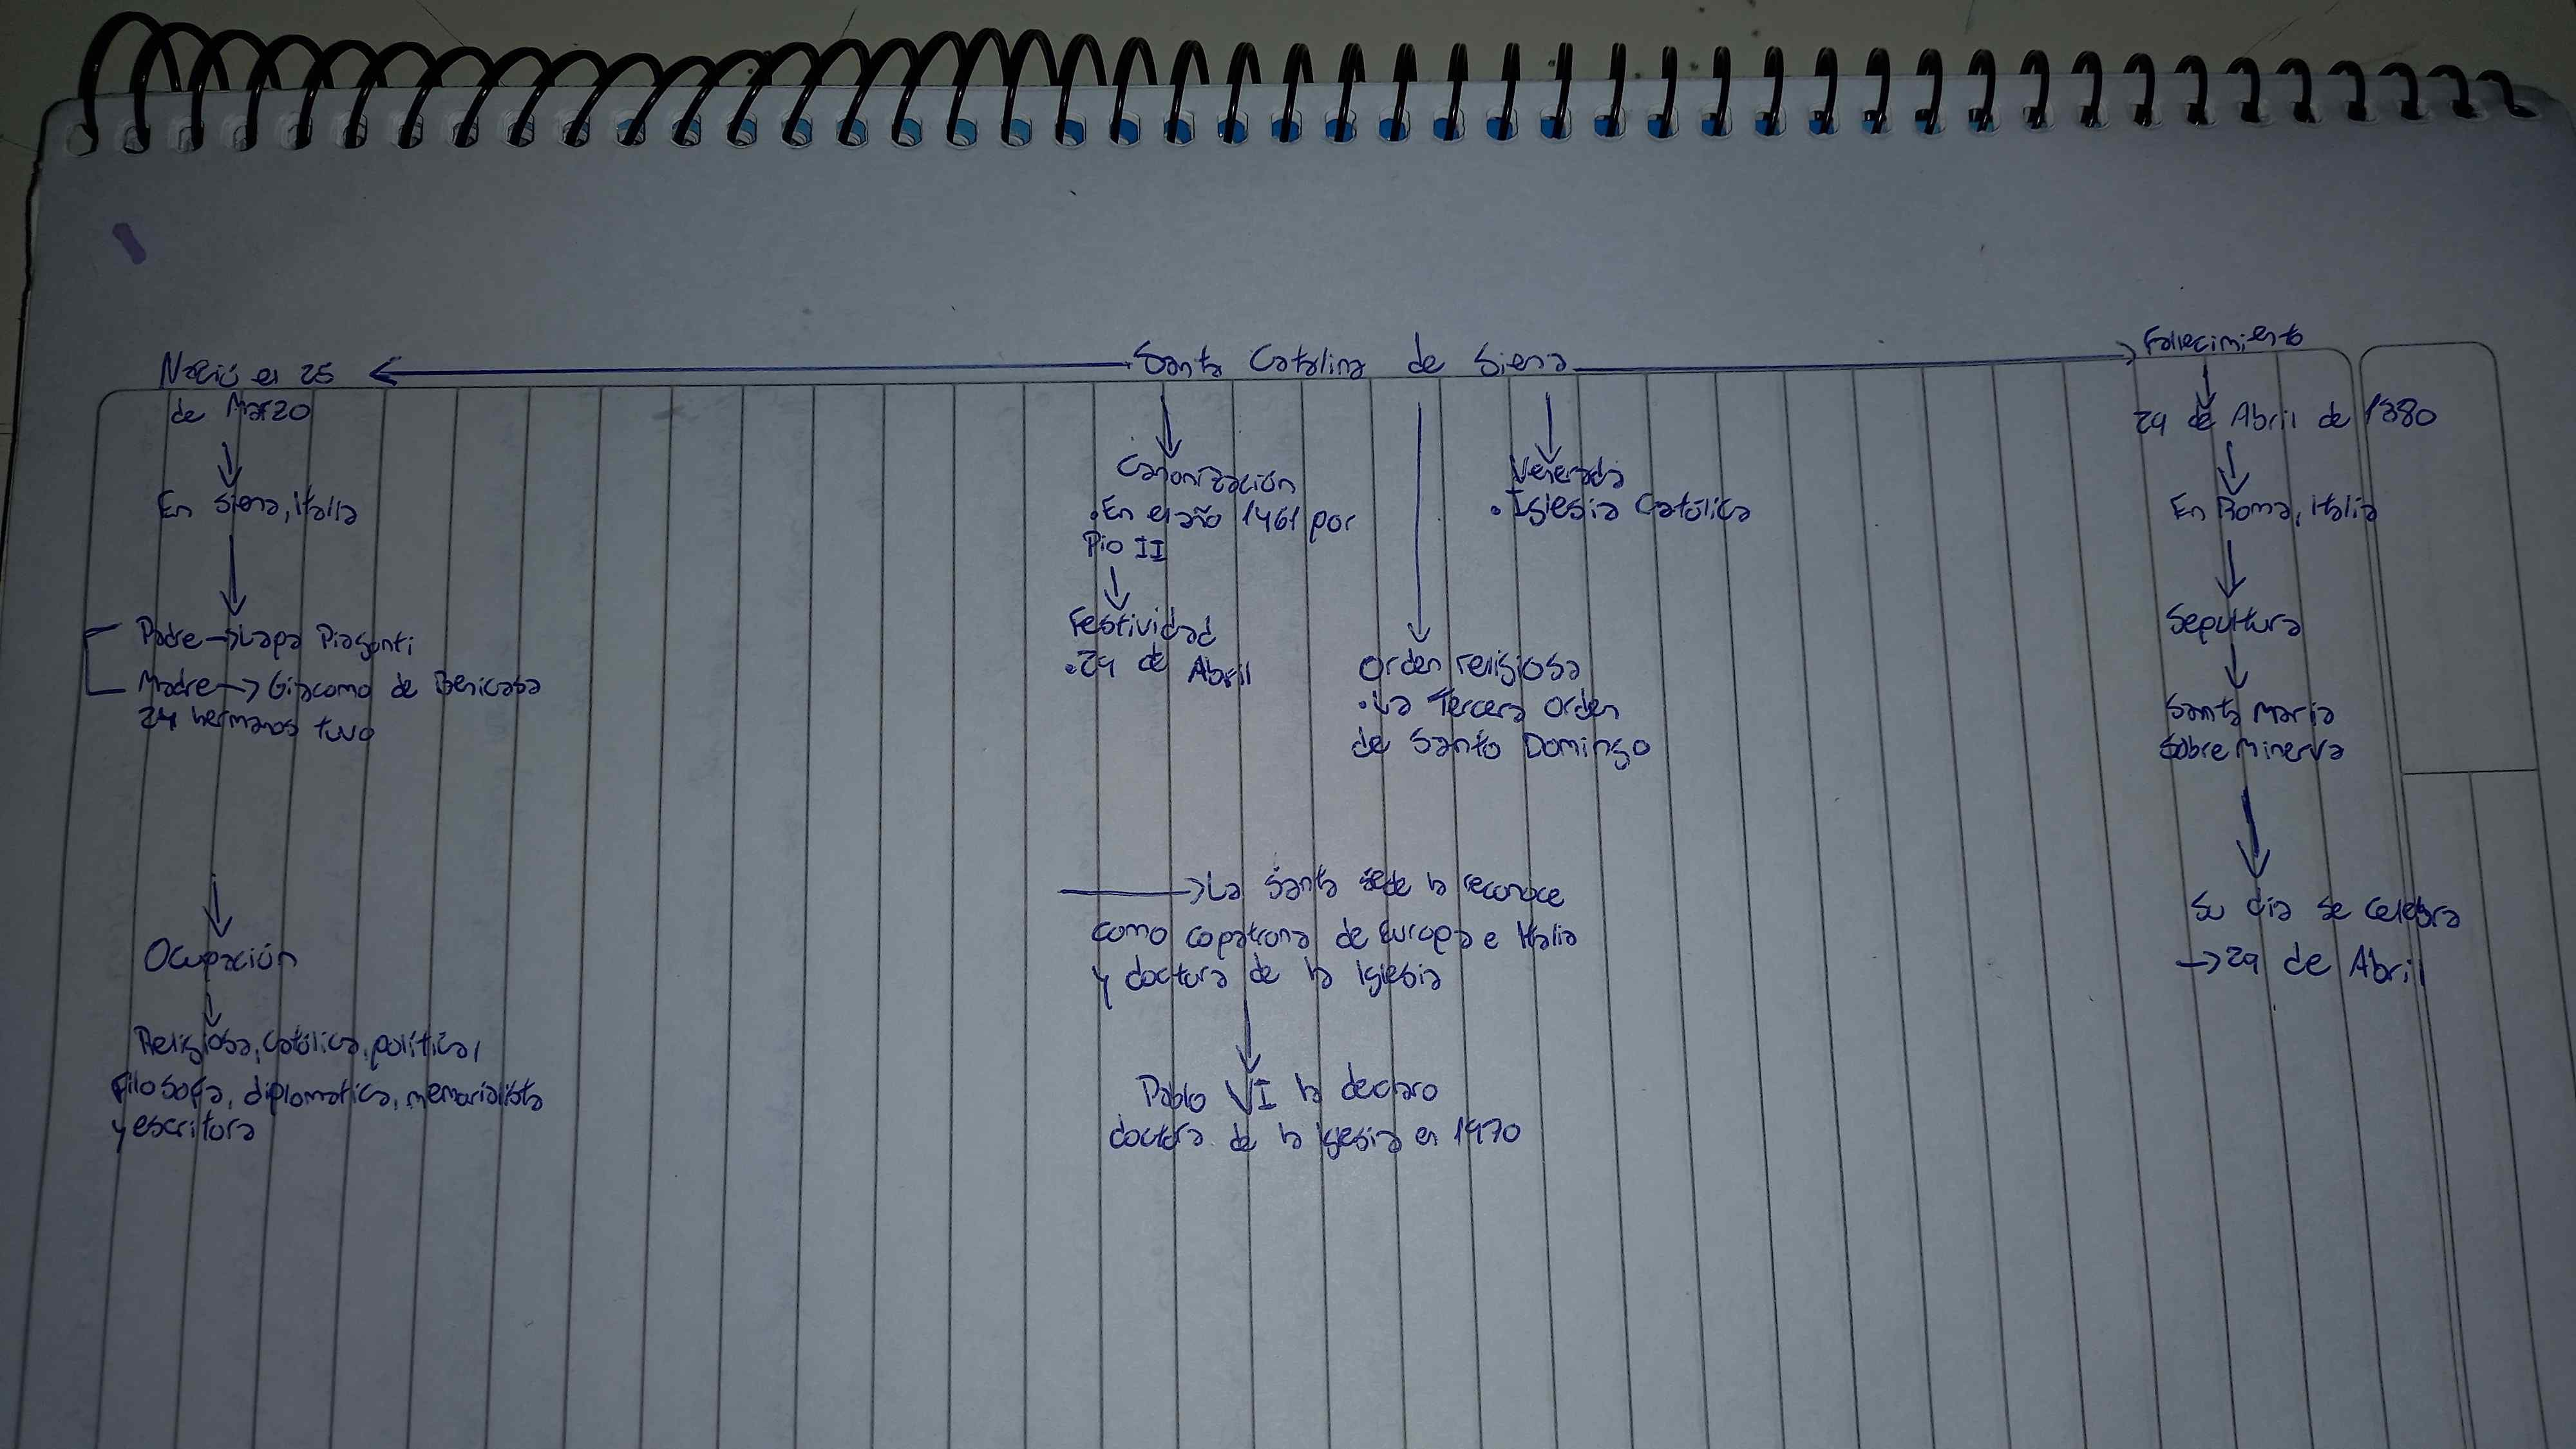 Santa Catalina de Siena
Nació el 25
de Marzo
En Siena, Italia
Padre → Lapa Piasgnti
Madre → Giacomo de Benicasa
24 hermanos tuvo
Ocupación
Religiosa, católica, política,
Filosofa, diplomatica, memorialista
y escritora
Canonización
• En el año 1461 por
Pio II
Festividad
• 29 de Abril
Orden religiosa
• La Tercera Orden
de Santo Domingo
Venerada
• Iglesia Católica
→ La Santa sede la reconoce
como copatrona de Europa e Italia
y doctora de la Iglesia
Pablo VI la declaro
doctora de la Iglesia en 1970
Fallecimiento
29 de Abril de 1380
En Roma, Italia
Sepultura
Santa María
Sobre Minerva
Su día se celebra
→ 29 de Abril